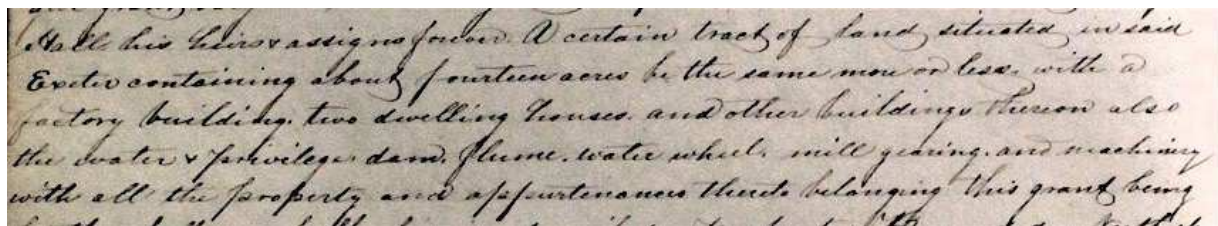 Hall his heirs & assigns forever. A certain tract of land situated in said
Exeter containing about fourteen acres be the same more or less. with a
factory building. two dwelling houses. and other buildings thereon also
the water & privilege. dam. flume. water wheel. mill gearing. and machinery
with all the property and appurtenances thereto belonging this grant being